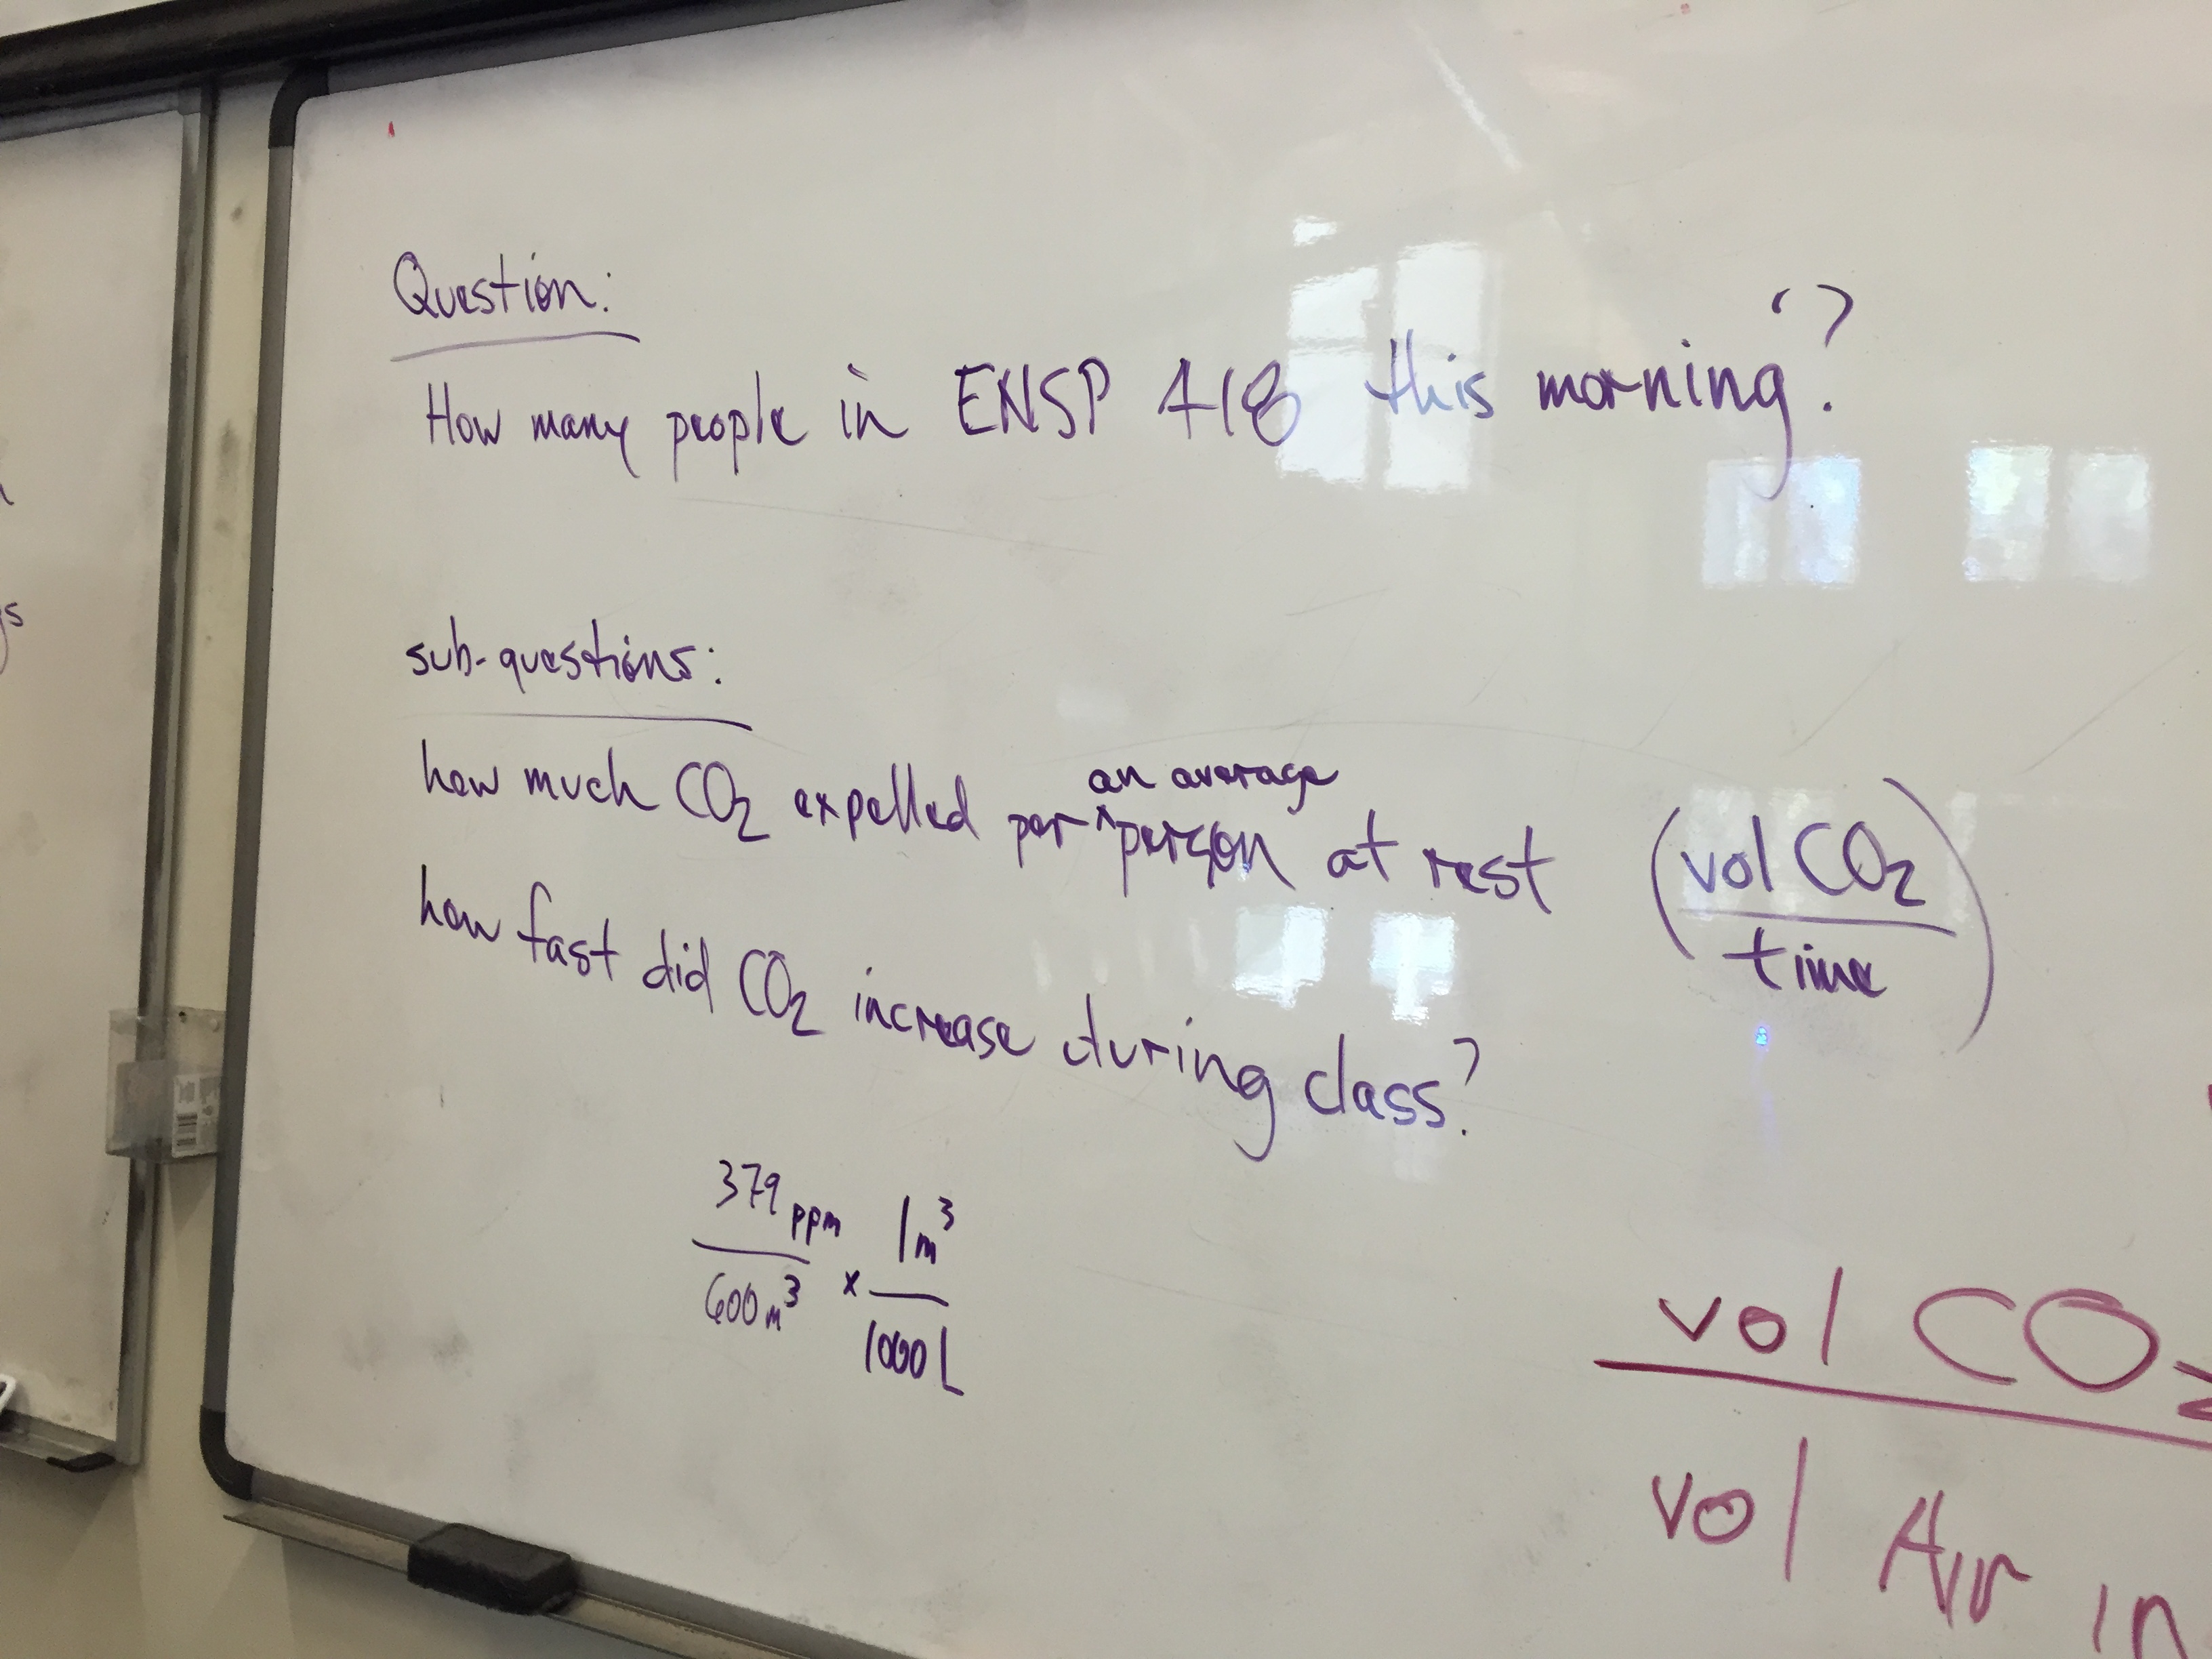 Question:
How many people in ENSP 418 this morning?
sub-questions:
how much CO₂ expelled per ^ an average person at rest (vol CO₂ / time)
how fast did CO₂ increase during class?
379 ppm / 600 m³ × 1 m³ / 1000 L
vol CO₂
vol Air in